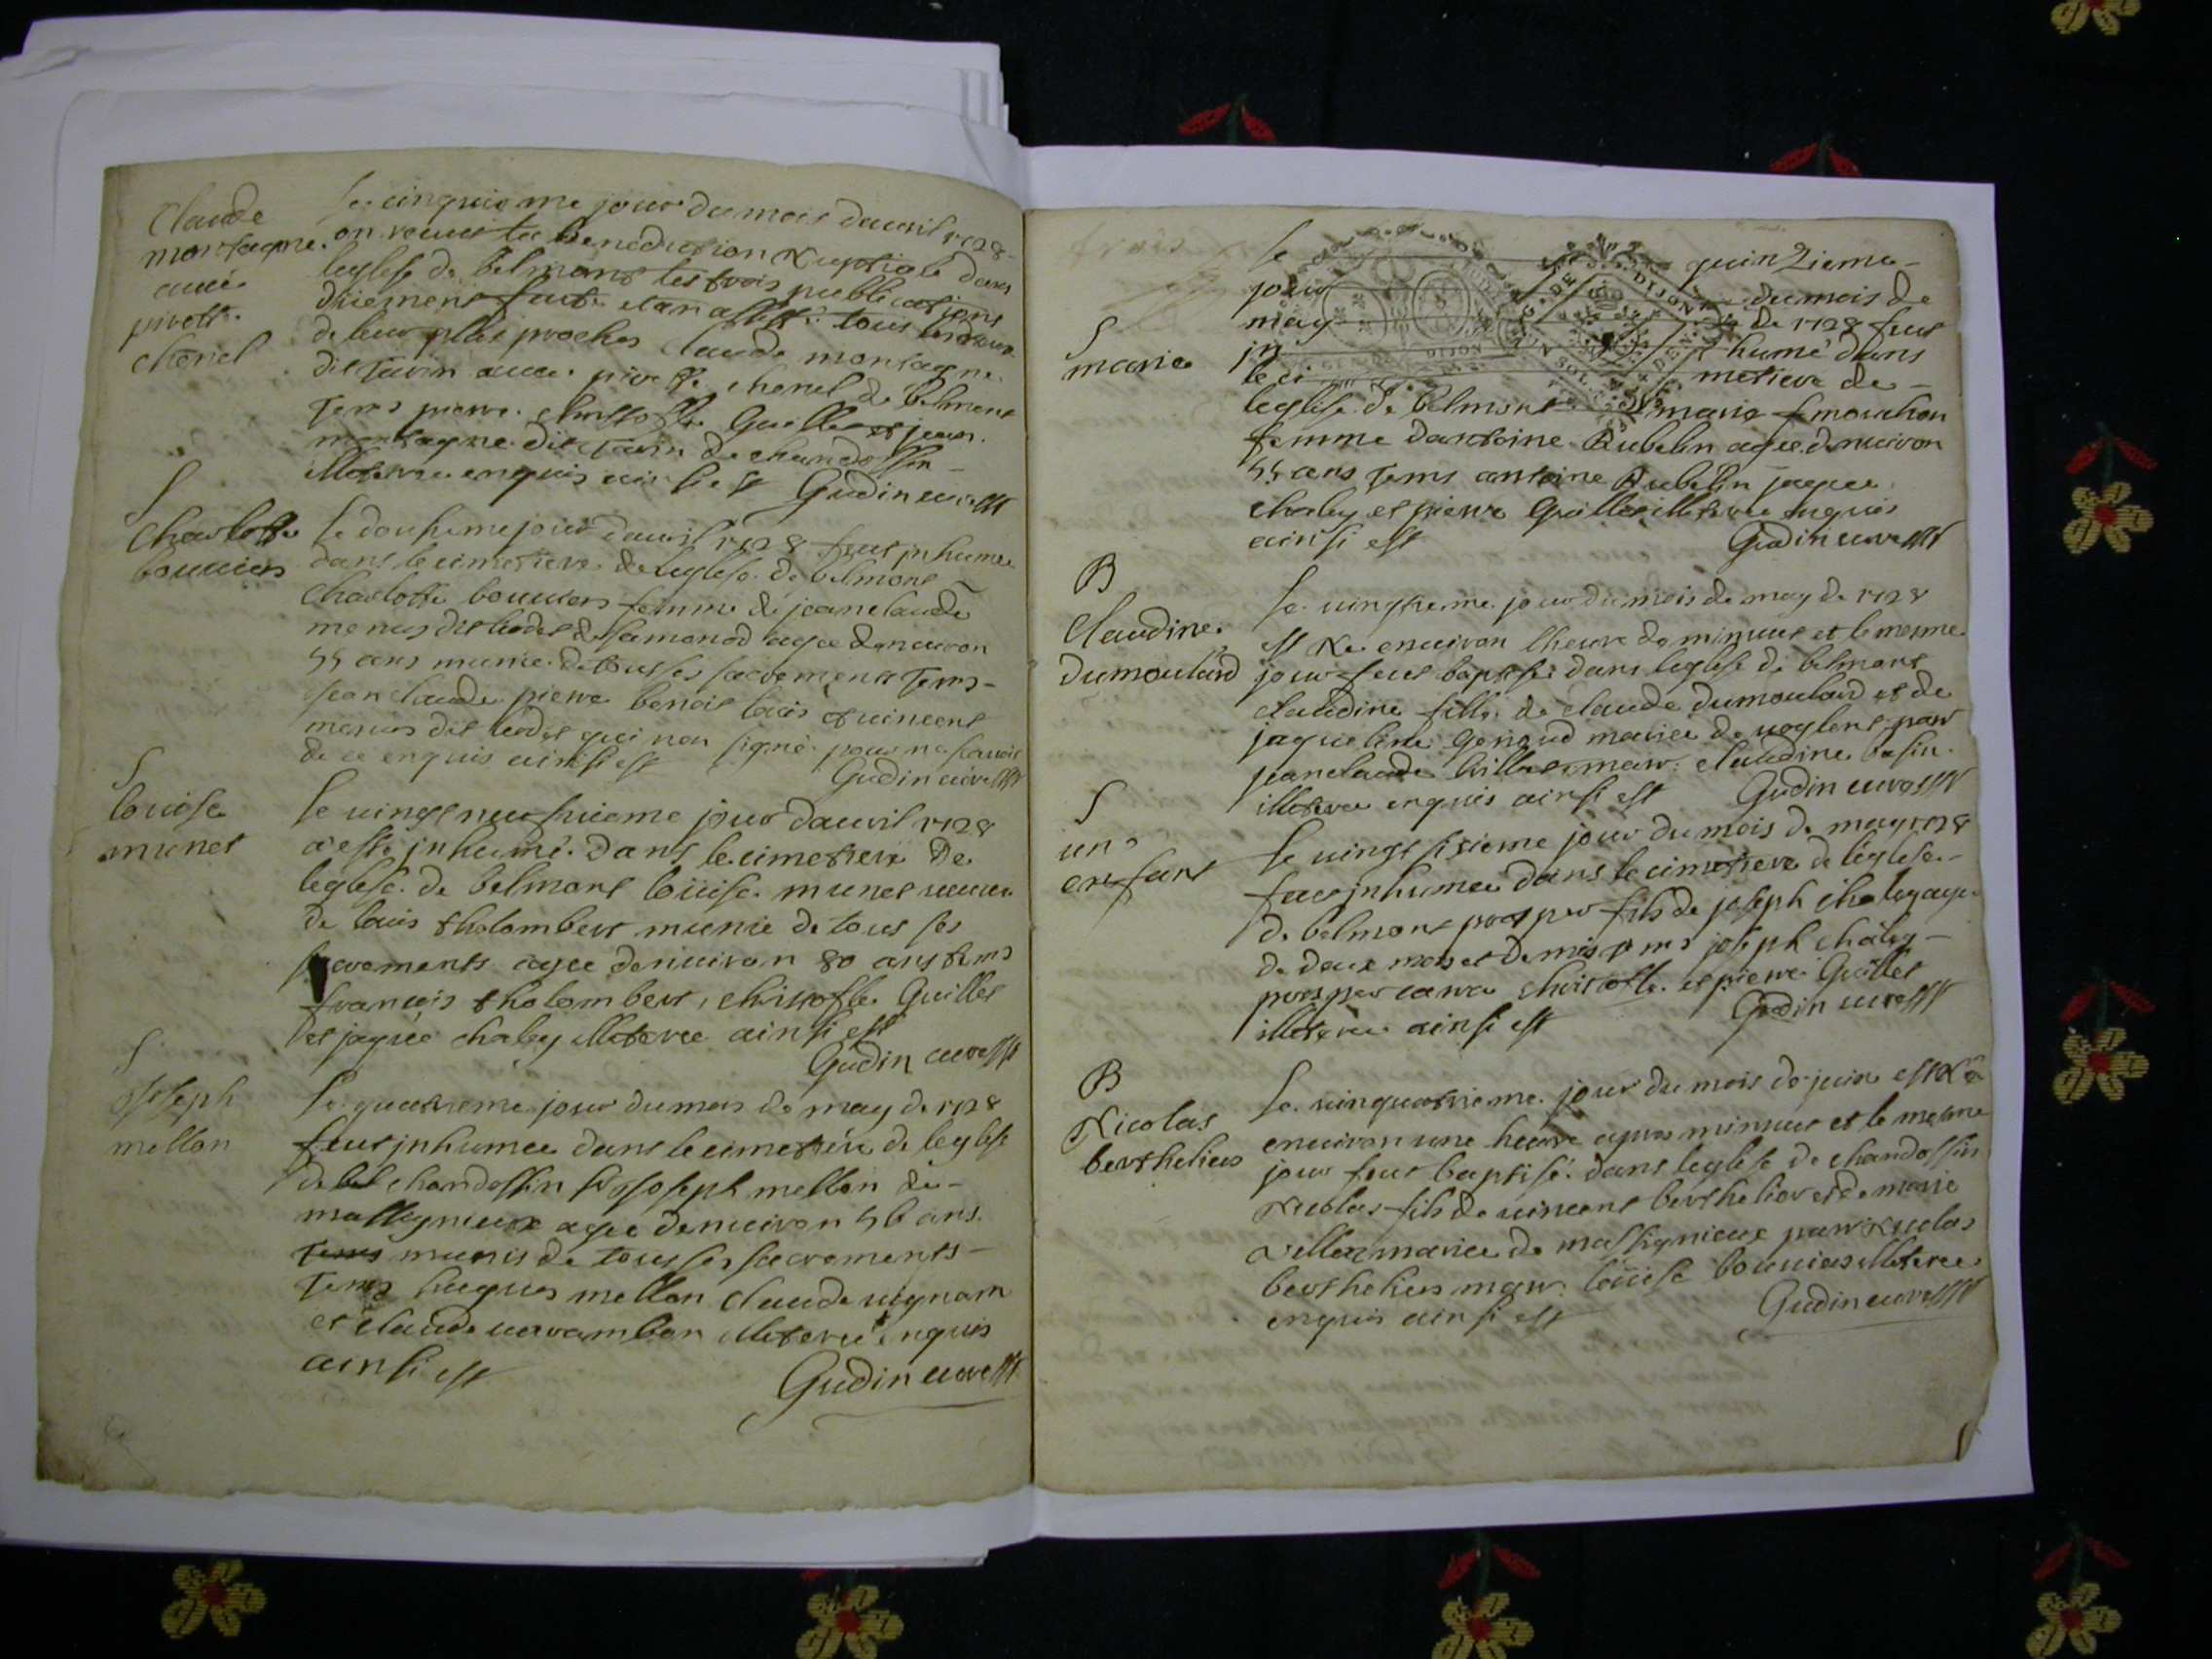 Claude
montagne
avec
pirette
chenel
Le cinquieme jour du mois dauril 1728
on receut la benediction Nuptiale dans
leglise de belmont les trois publications
duement faite et an assisté tous
de leur plus proches Claude montagne
dit Tavin avec pirette chenel de belmont
Tems pierre christofle Guillet et jean
montagne dit Tavin de chandossin
illiteree enquis ainsi est Gudin curé
S
Charlotte
bouuiers
Le dousieme jour dauril 1728 feut inhumee
dans le cimetiere de leglise de belmont
Charlotte bouuiers femme de jean claude
menus dit lodet de samonod agee denuiron
55 ans munie de tous ses sacrements Tems
Jean claude pierre benoit louis et uincent
menus dit lodet qui non signé pour ne sauoir
de ce enquis ainsi est Gudin curé
S
louise
munet
Le uingt neufuieme jour dauril 1728
a esté inhumé dans le cimetiere de
leglise de belmont loüise munet ueuue
de louis tholombert munie de tous ses
sacrements agee denuiron 80 ans tems
francois tholombert, christofle Guillet
et jaque chaley illiteree ainsi est
Gudin curé
S
Joseph
mellon
Le quatrieme jour du mois de may de 1728
feut inhumee dans le cimetiere de leglise
de bel chandossin Joseph mellon de
massignieux agee denuiron 56 ans
Tems munis de tous ses sacrements
Tems hugues mellon Claude uignam
et claude illiteree enquis
ainsi est Gudin curé
S
marie
Le quinzieme
jour du mois de
may de 1728 feut
in humé dans
le ci metiere de
leglise de belmont marie mouchon
femme dantoine Rubelin agee denuiron
55 ans Tems antoine Rubelin jaque
chaley et pierre Guillet illiteree enquis
ainsi est Gudin curé
B
Claudine
Dumoulard
Le uingtieme jour du mois de may de 1728
est Nee enuiron lheure de minuit et le mesme
jour feut baptisé dans leglise de belmont
claudine fille de claude dumoulard et de
jaqueline Genoud mariee de uoglent parr
jean claude billiet marr claudine basin
illiteree enquis ainsi est Gudin curé
S
un
enfant
Le uingt sisieme jour du mois de may 1728
feut inhumee dans le cimetiere de leglise
de belmont prosper fils de joseph chaley agee
de deux mois et demis tems joseph chaley
prosper carra christofle et pierre Guillet
illiteree ainsi est Gudin curé
B
Nicolas
bertheliers
Le uinquatrieme jour du mois de juin est Né
enuiron une heure apres minuit et le mesme
jour feut baptisé dans leglise de chandossin
Nicolas fils de uincent berthelier et de marie
uellex mariee de massignieux parr Nicolas
bertheliers marr loüise bouuiers illiteree
enquis ainsi est Gudin curé